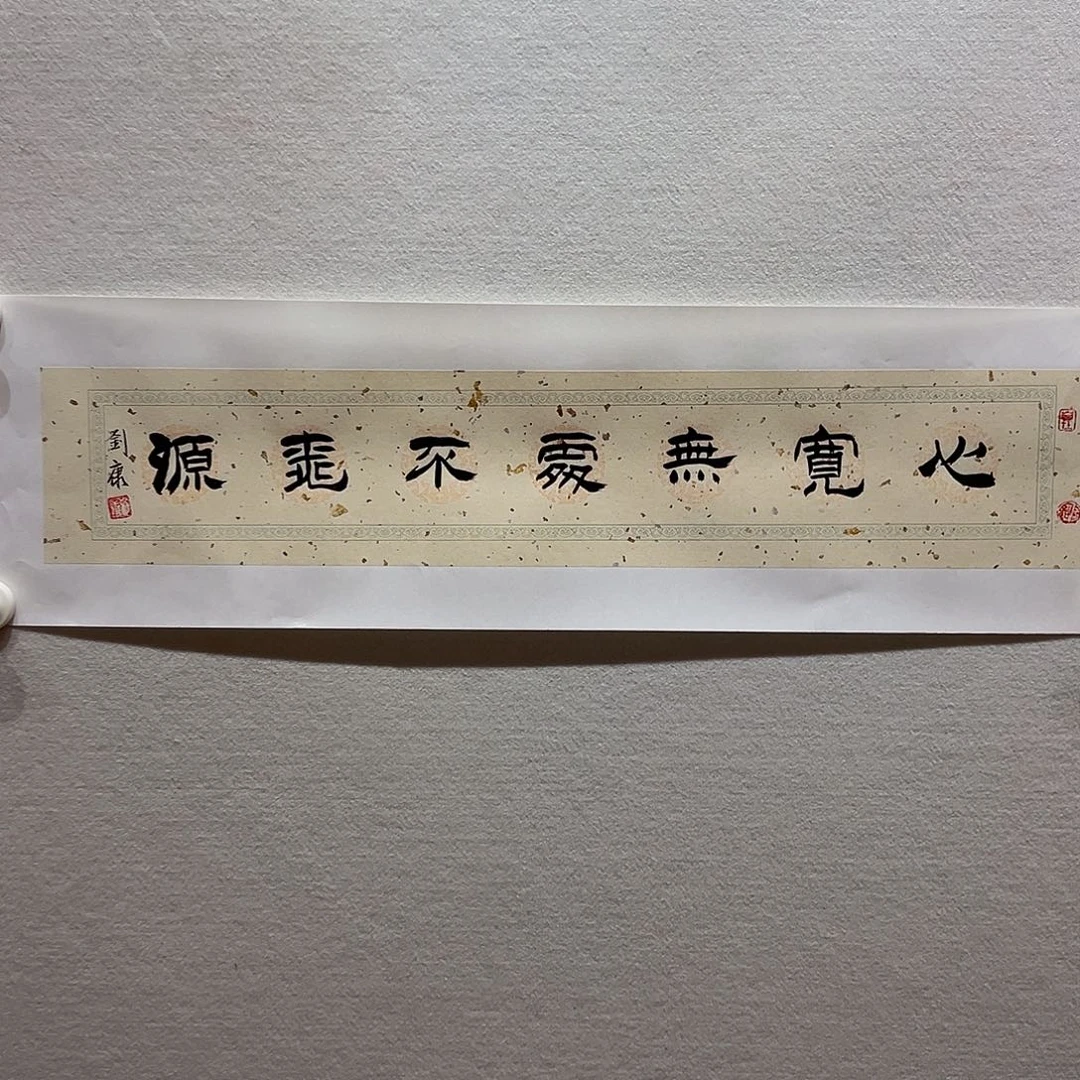 心寬無處不桃源
劉康